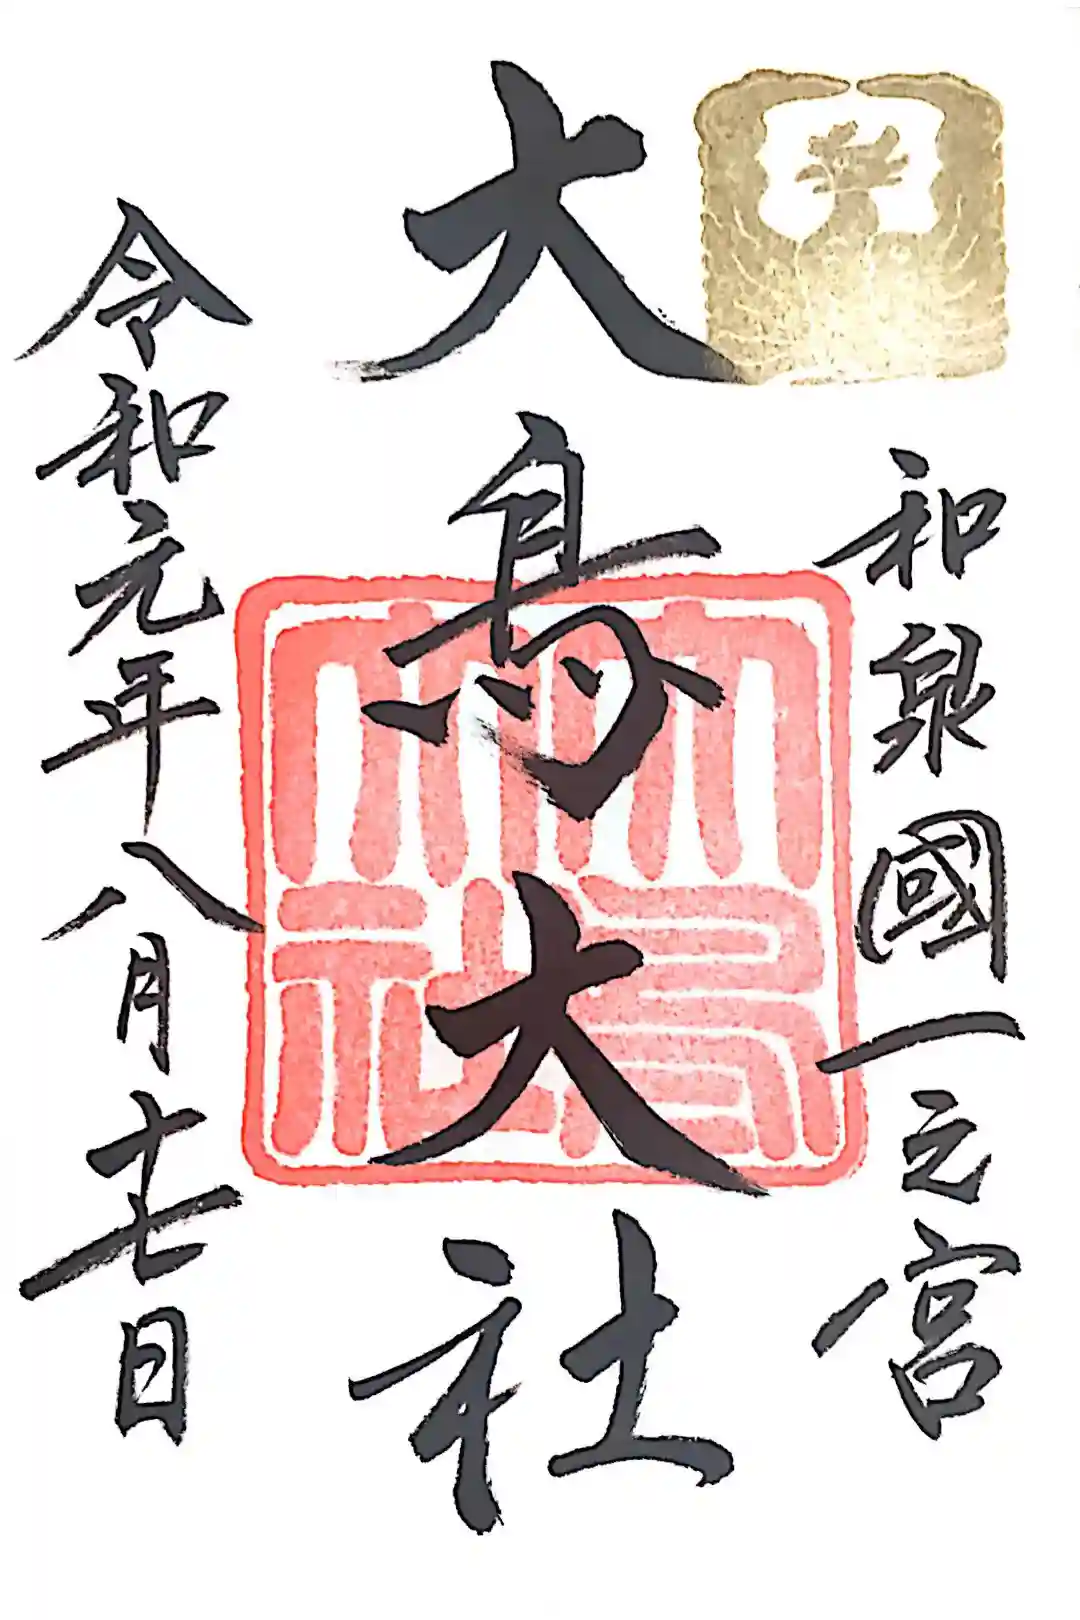 和泉國一之宮
大鳥大社
大鳥大社
令和元年八月十七日